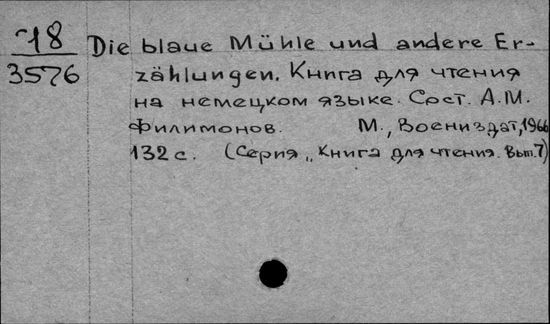 18
3576
Die blaue Mühle und andere Er-
zählungen. Книга для чтения
на немецком языке. Сост. А.М.
Филимонов. М., Воениздат, 1966
132 с. (Серия „Книга для чтения. Вып. 7)